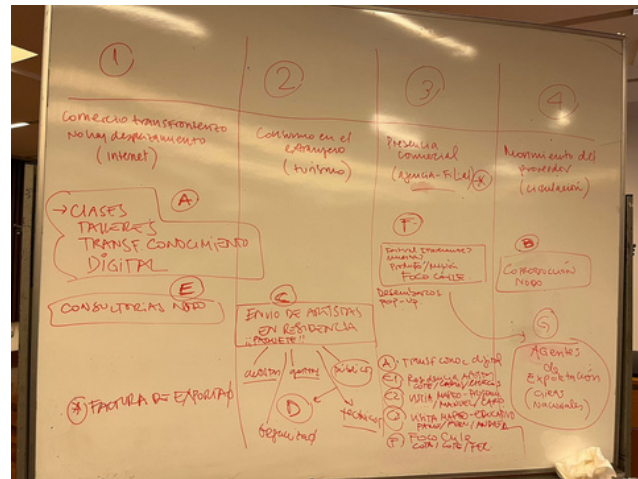 1
Comercio transfronterizo
No hay desplazamiento
(internet)
A
→ CLASES
TALLERES
TRANSF CONOCIMIENTO
DIGITAL
E
CONSULTORIAS NODO
(*) FACTURA DE EXPORTAÇ
2
Consumo en el
extranjero
(turismo)
C
ENVIO DE ARTISTAS
EN RESIDENCIA
¡¡PAQUETE!!
públicos
D
técnicos
3
Presencia
comercial
(agencia-Filial) *
F
FOCO CHILE
pop-up
A: TRANSF CONOC digital
C1
C2 VISITA
C3 VISITA EDUCATIVO
F Foco Chile
4
Movimiento del
proveedor
(circulación)
B
COPRODUCCIÓN
NODO
G
AGENTES
de
Exportación
(Giras
Nacionales)